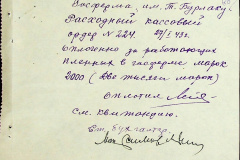 Госферма, им. Т. Бурлаку.
Расходный кассовый
ордер № 224. 27/I 43г.
Оплочено за работающих
пленных в госферме марок
2000 (две тысячи марок)
оплотил
См. квитанцию.
Ст. бухгалтер.